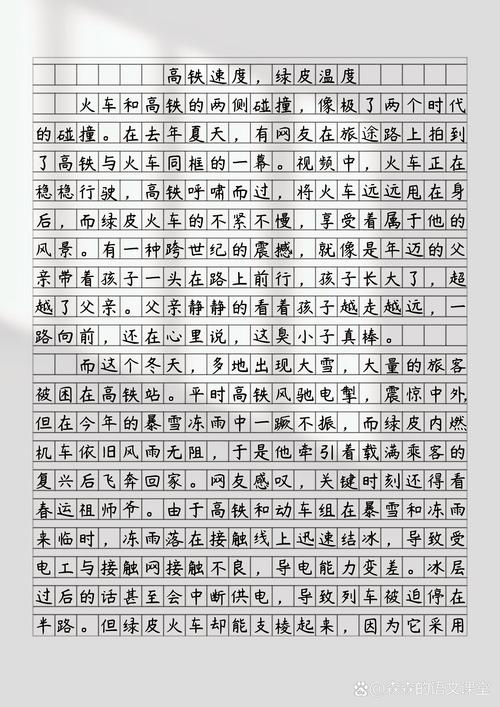 高铁速度，绿皮温度
火车和高铁的两侧碰撞，像极了两个时代
的碰撞。在去年夏天，有网友在旅途路上拍到
了高铁与火车同框的一幕。视频中，火车正在
稳稳行驶，高铁呼啸而过，将火车远远甩在身
后，而绿皮火车的不紧不慢，享受着属于他的
风景。有一种跨世纪的震撼，就像是年迈的父
亲带着孩子一头在路上前行，孩子长大了，超
越了父亲。父亲静静的看着孩子越走越远，一
路向前，还在心里说，这臭小子真棒。
而这个冬天，多地出现大雪，大量的旅客
被困在高铁站。平时高铁风驰电掣，震惊中外，
但在今年的暴雪冻雨中一蹶不振，而绿皮内燃
机车依旧风雨无阻，于是他牵引着载满乘客的
复兴后飞奔回家。网友感叹，关键时刻还得看
春运祖师爷。由于高铁和动车组在暴雪和冻雨
来临时，冻雨落在接触线上迅速结冰，导致受
电工与接触网接触不良，导电能力变差。冰层
过后的话甚至会中断供电，导致列车被迫停在
半路。但绿皮火车却能支棱起来，因为它采用
森森的语文课堂